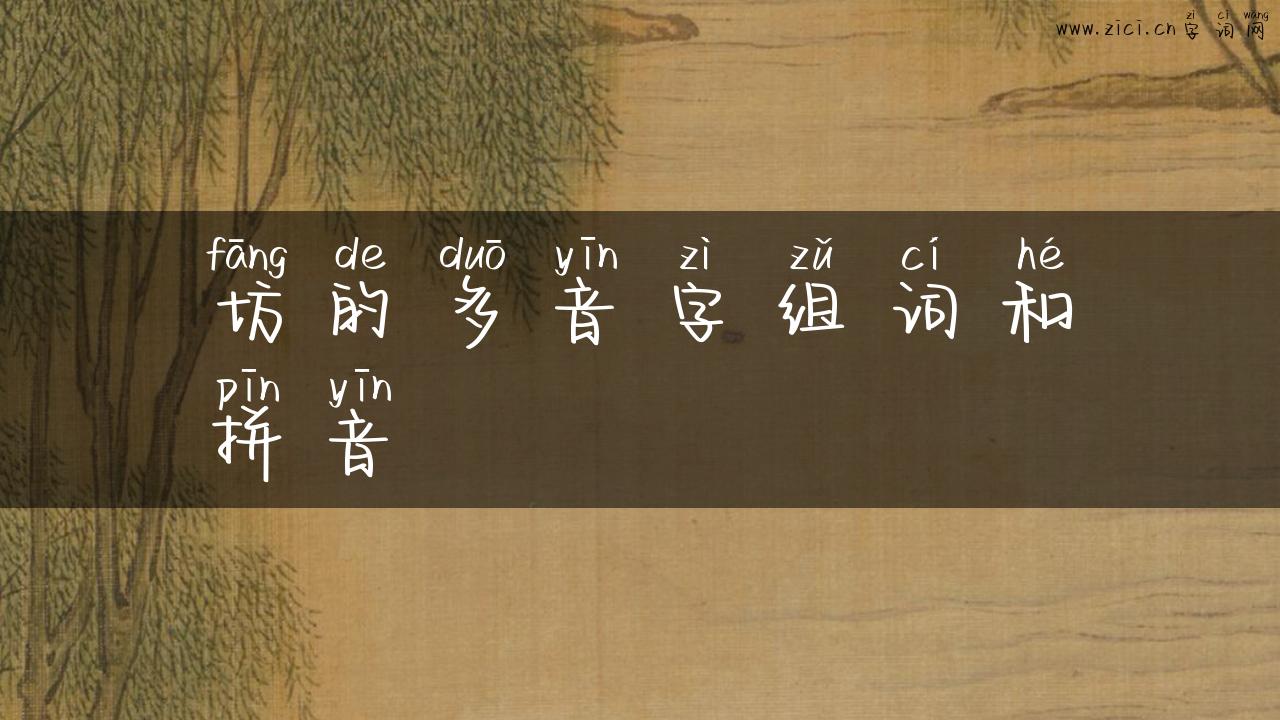 zì cí wǎng
www.zici.cn字词网
fāng de duō yīn zì zǔ cí hé
坊的多音字组词和
pīn yīn
拼音